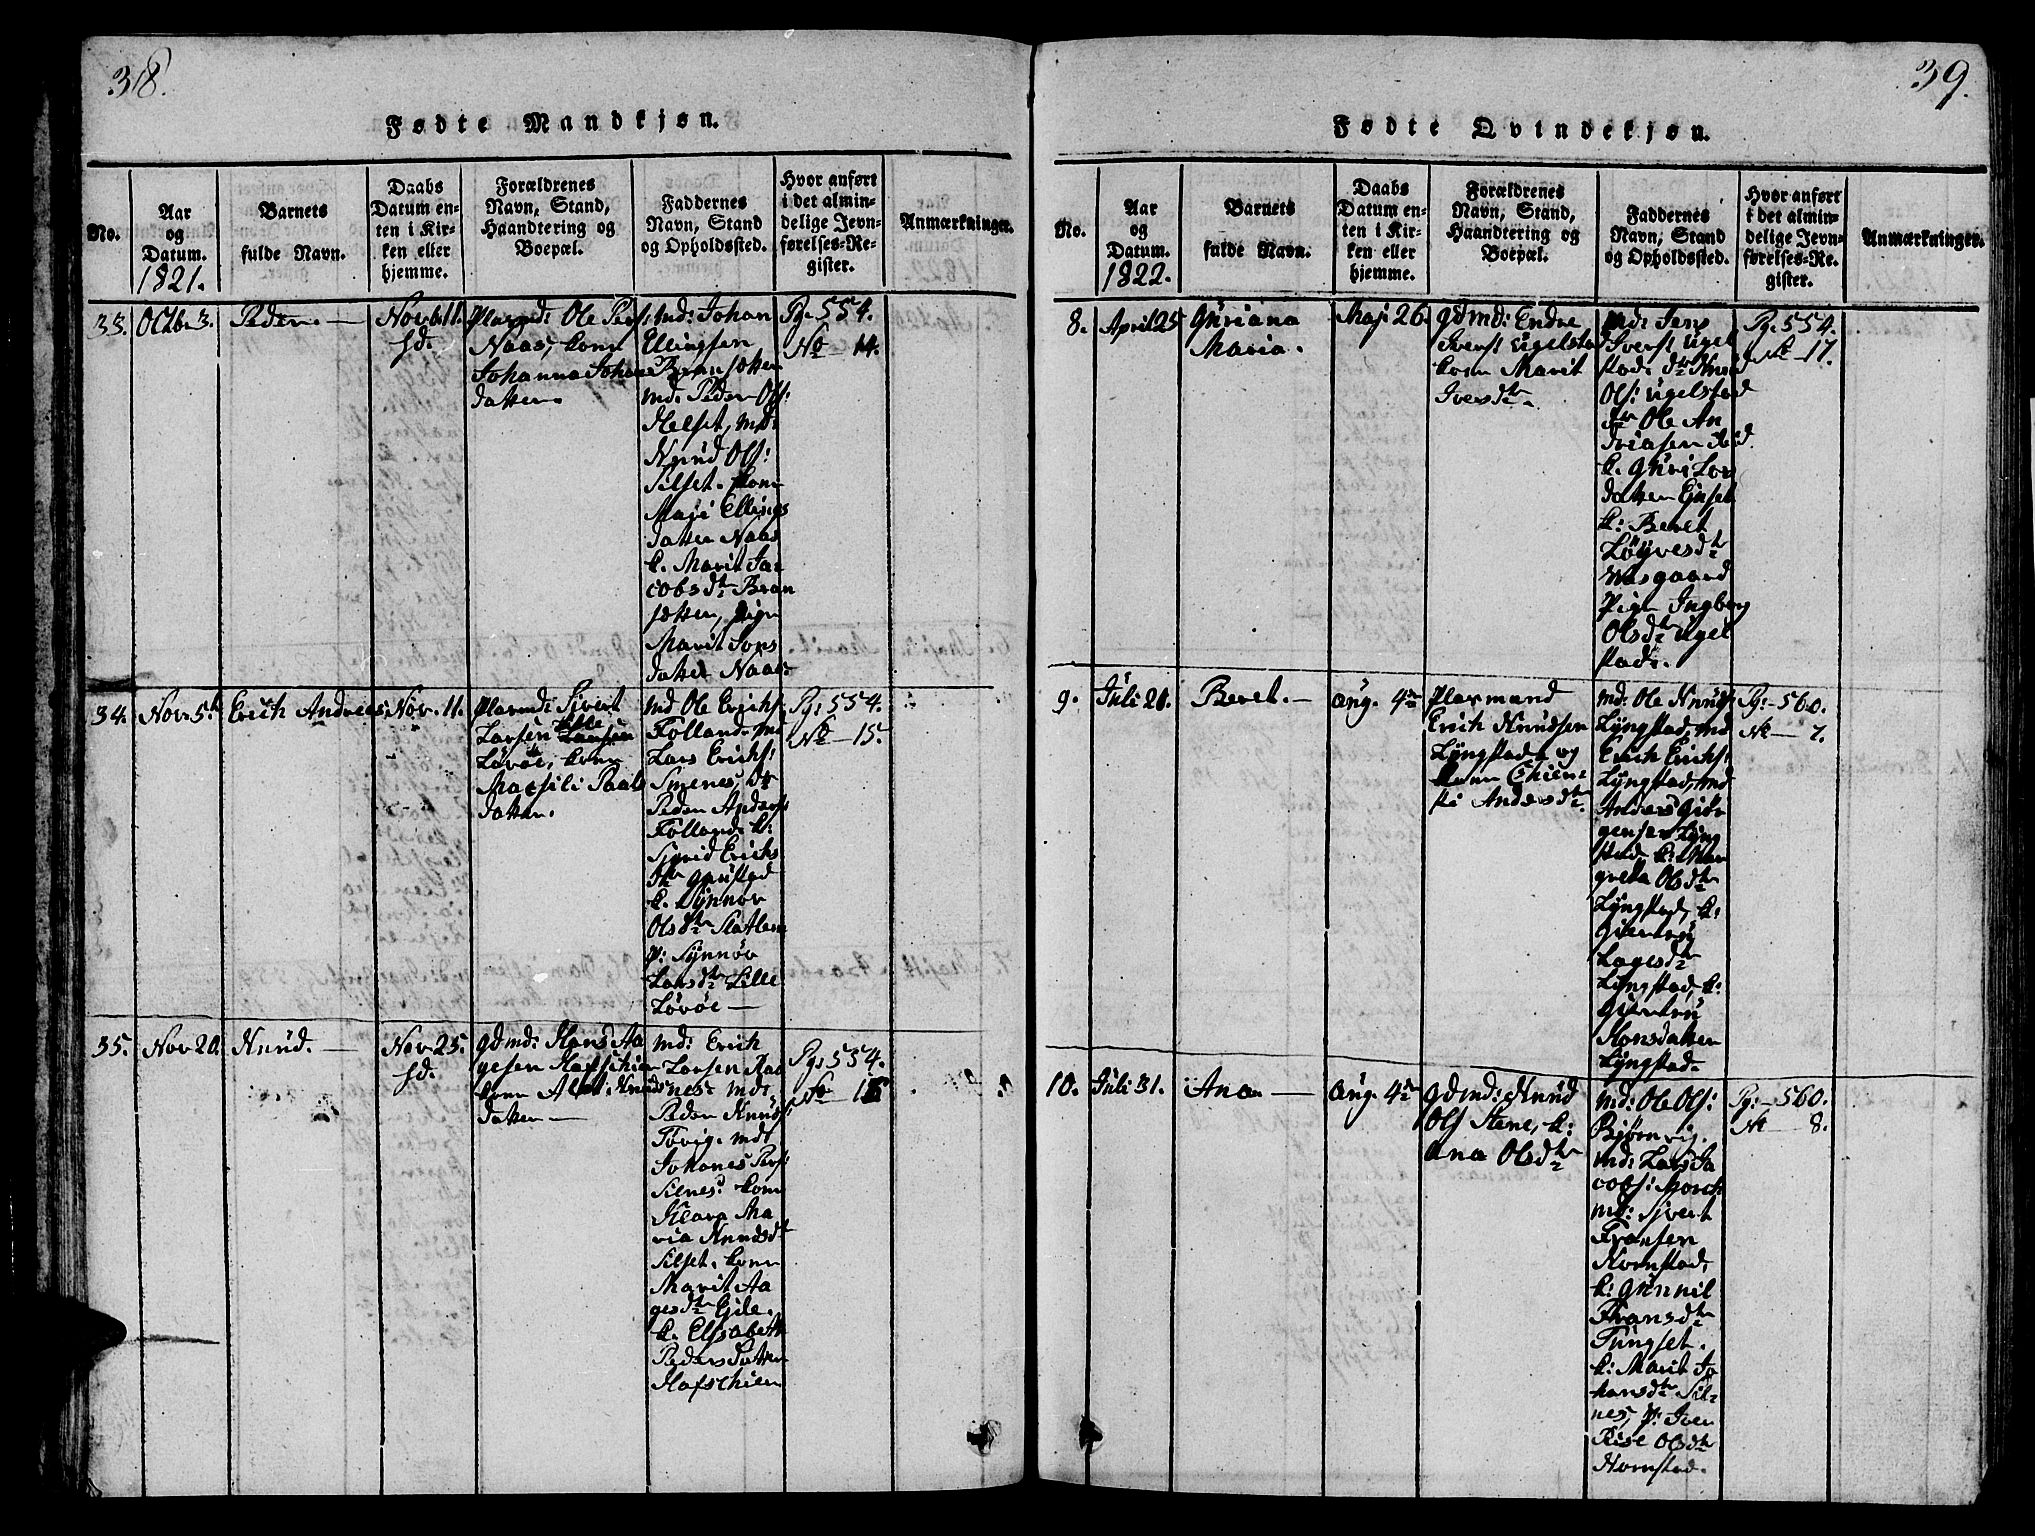 38.
Fødte Mandkjøn.
No.
Aar
og
Datum.
1821.
Barnets
fulde Navn.
Daabs
Datum en-
ten i Kir-
ken eller
hjemme.
Forældrenes
Navn, Stand,
Haandtering og
Boepæl.
Faddernes
Navn, Stand
og Opholdssted.
Hvor anført
i det almin-
delige Jevn-
førelses-Re-
gister.
Anmærkninger.
33.
Octb. 3.
Peder.
Novb. 11.
hd.
Ole Peds:
Naas, kone
Johanna Johans
datter.
md: Johan
Ellingsen
Bransætter
md: Peder Ols:
Helset, md:
Knud Ols:
Silset. kone
Mari Ellings
datter Naas
k. Marit Ja
cobsdtr Bran
sætter, pige
Marit Jons
datter Naas.
Pg. 554.
No 14.
34.
Nov. 5.
Erich Andreas
Nov. 11.
Sivert
Larsen Lille
Lövöe, kone
Marsili Paals
datter.
md Ole Erichs:
Folland. md
Lars Erichs:
Smenes, dr
Peder Anders:
Folland. k:
Sigrid Erichs
dtr Gaustad
k. Synnöv
Olsdtr Slatlem
p: Synnöv
Larsdtr Lille
Lövöe
Pg: 554.
No 15.
35.
Nov 20.
Knud.
Nov. 25.
hd.
gdmd: Hans Aa
gesen Hafschien
kone Knuds
datter
md: Erich
Larsen Raa
nes. md:
Peder Knuds:
Tövig. md:
Johanes Peds:
Silnes: kone
Klara Ma
ria Knudsdtr
Silset. kone
Marit Aa
gesdtr Eide.
k. Elsabeth
Pedersdatter
Hafschien
Pg: 554.
No 16
39.
Fødte Qvindekjøn.
No.
Aar
og
Datum.
1822.
Barnets
fulde Navn.
Daabs
Datum en-
ten i Kir-
ken eller
hjemme.
Forældrenes
Navn, Stand,
Haandtering og
Boepæl.
Faddernes
Navn, Stand
og Opholdssted.
Hvor anført
i det almin-
delige Jevn-
førelses-Re-
gister.
Anmærkninger.
8.
April 25
Guriana
Maria.
Maj 26.
gdmd: Endre
Ivers: Ugelstad
kone Marit
Iversdtr.
md: Jens
Ivers: Ugel
stad. dr Knud
Ols: Ugelstad
dr Ole An
driasen ibid.
k. Guri Lars
datter Ejset
k: Beret
Löyvesdtr
Wasgaard
Pige Ingborg
Olsdtr Ugel
stad.
Pg. 554.
No 17.
9.
Juli 20.
Beret.
Aug. 4de
Erich Knudsen
Lyngstad og
kone Chien=
sti Andersdtr
md: Ole Knuds:
Lyngstad, md
Erich Erichs:
Lyngstad, md
Anders Giör
gensen Lyng
stad k: Mar
greta Olsdtr
Lyngstad, k:
Giertrü
Lagesdtr
Lyngstad, k:
Giertrü
Hansdatter
Lyngstad.
Pg: 560.
No 7.
10.
Juli 31.
Ana
Aug. 4de
gdmd: Knud
Ols Stene, k:
Ana Olsdtr
md: Ole Ols:
Bjørnvig.
md: Lars Ja
cobs: Morch
md: Sivert
Fransen
Hornstad,
k: Gunnil
Fransdtr
Tungset.
k: Marit Jo
hansdtr Sil=
nes, p: Iver
Rise Olsdtr
Hornstad.
Pg: 560.
No 8.